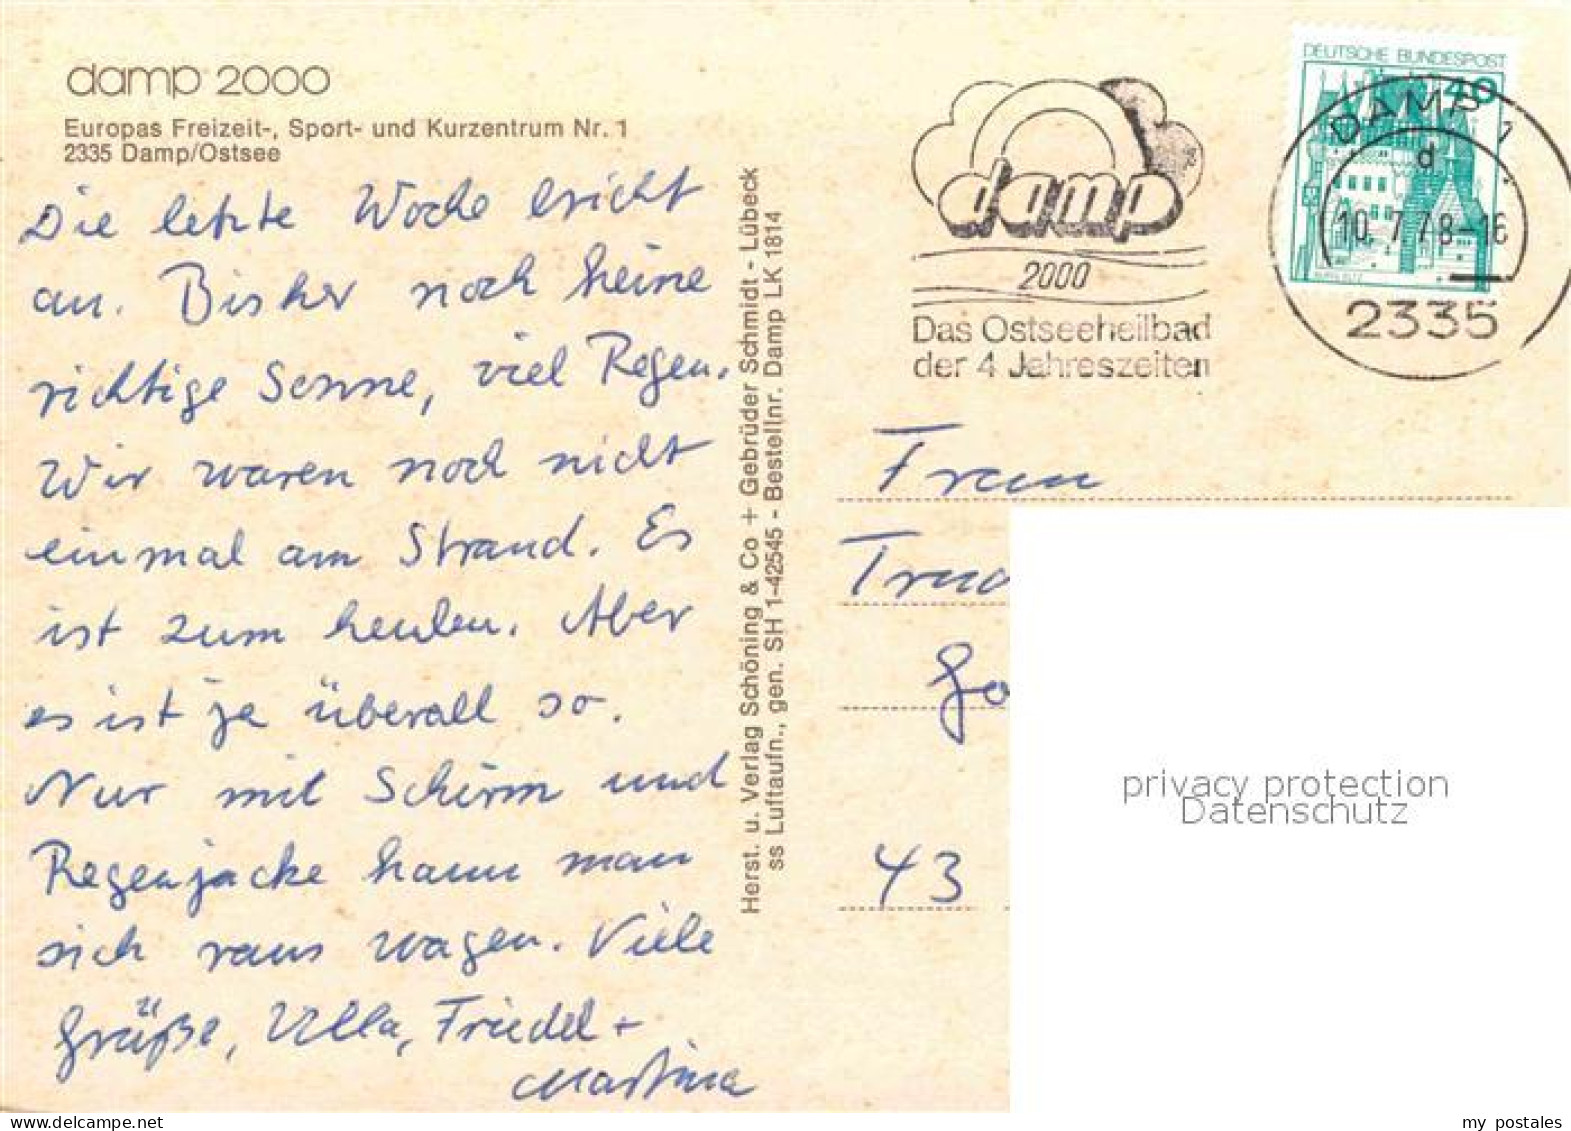 damp 2000
Europas Freizeit-, Sport- und Kurzentrum Nr. 1
2335 Damp/Ostsee
Die letzte Woche bricht
an. Bisher noch keine
richtige Sonne, viel Regen.
Wir waren noch nicht
einmal am Strand. Es
ist zum heulen. Aber
es ist ja überall so.
Nur mit Schirm und
Regenjacke kann man
sich raus wagen. Viele
Grüße, Ulla, Friedel +
Martina
Herst. u. Verlag Schöning & Co + Gebrüder Schmidt - Lübeck
ss Luftaufn., gen. SH 1-42545 - Bestellnr. Damp LK 1814
damp
2000
Das Ostseeheilbad
der 4 Jahreszeiten
DEUTSCHE BUNDESPOST
40
DAMP 1
d
10.7.78-16
2335
Frau
43
privacy protection
Datenschutz
my postales